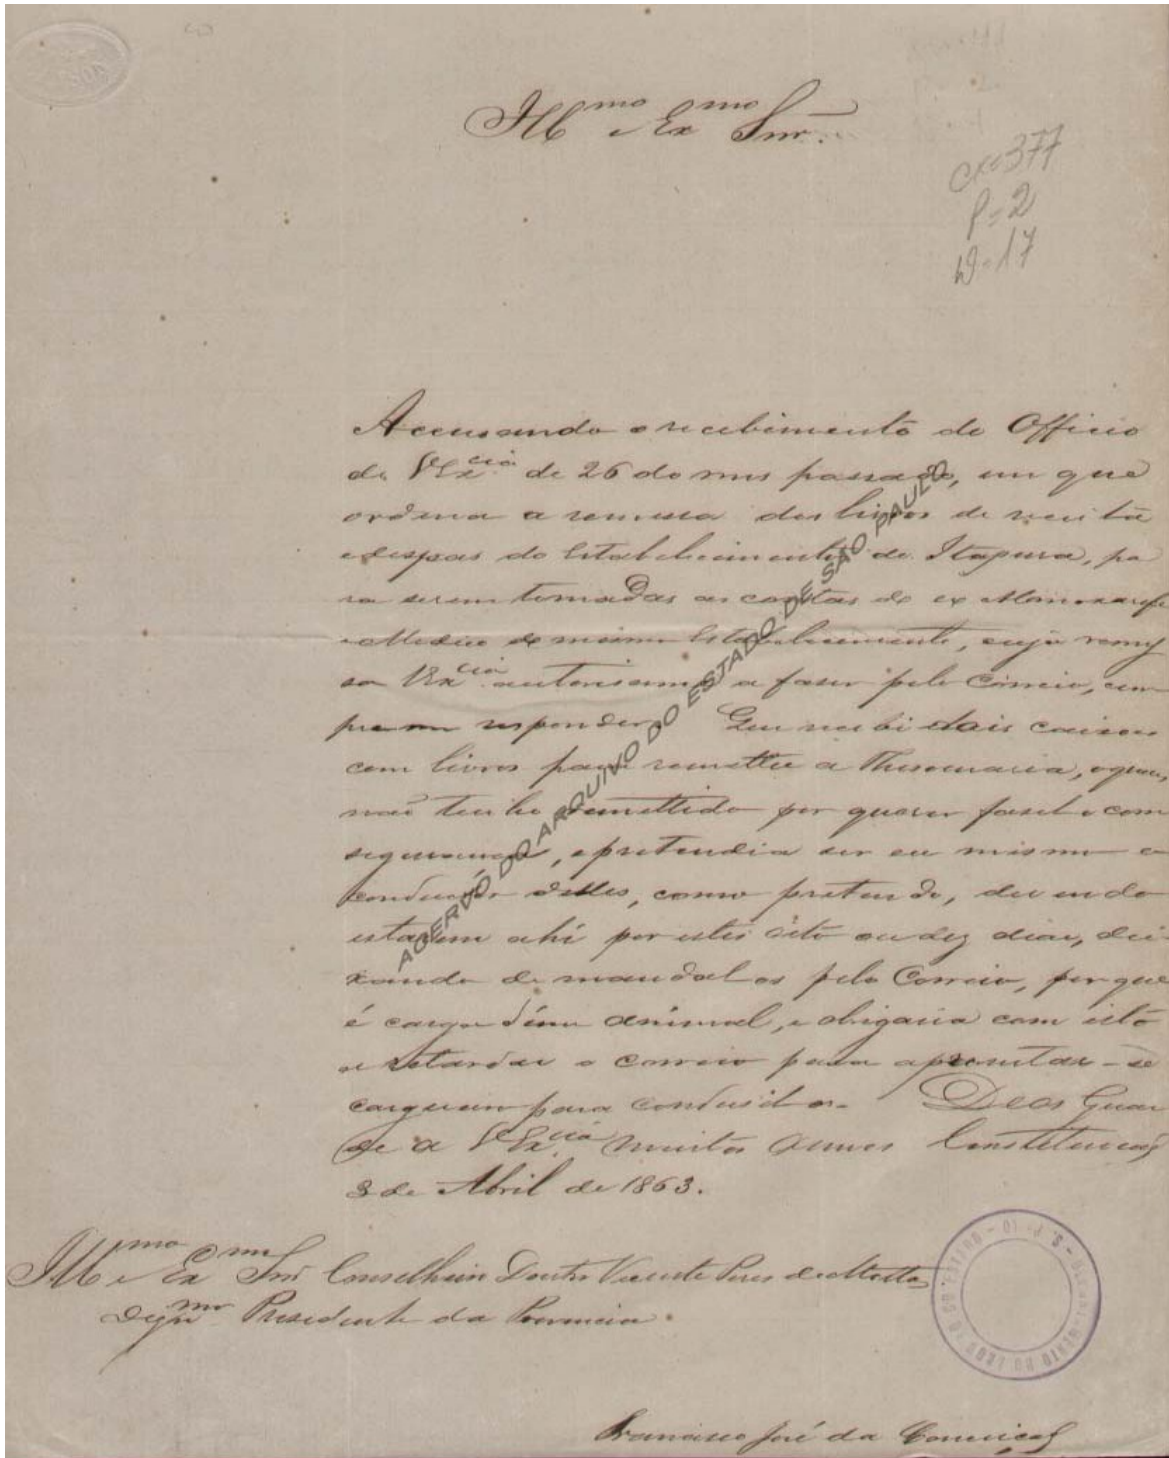 Illmo e Exmo Snr.
Cx=377
P=2
D=17
Accusando o recebimento do Officio
de VExcia de 26 do mes passado, em que
ordena a remessa dos livros de receita
e despeas do Estabelecimento de Itapura, pa
ra serem tomadas as contas do ex Almoxarife
e Medico do mesmo Estabelecimento, cuja remes
sa VExcia autorisam a faser pelo Correio, cum
pre me responder Que recebi dois caixoes
com livros para remetter a Thesouraria, o que
não tenho remettido por querer fasel o com
segurança, e pretendia ser eu mesmo o
condutor delles, como pretendo, devendo
estarem ahi por estes oito ou dez dias, dei
xando de mandal os pelo Correio, porque
é carga d'um animal, e obrigaria com isto
a retardar o correio para apromtar-se
cargueiro para condusil os. Deos Guar
de a VExcia muitos annos Constetuição
3 de Abril de 1863.
Illmo e Exmo Snr Conselheiro Doutor Vicente Pires da Motta
Dignmo Presidente da Provincia.
Francisco José da Conceição
ACERVO DO ARQUIVO DO ESTADO DE SÃO PAULO